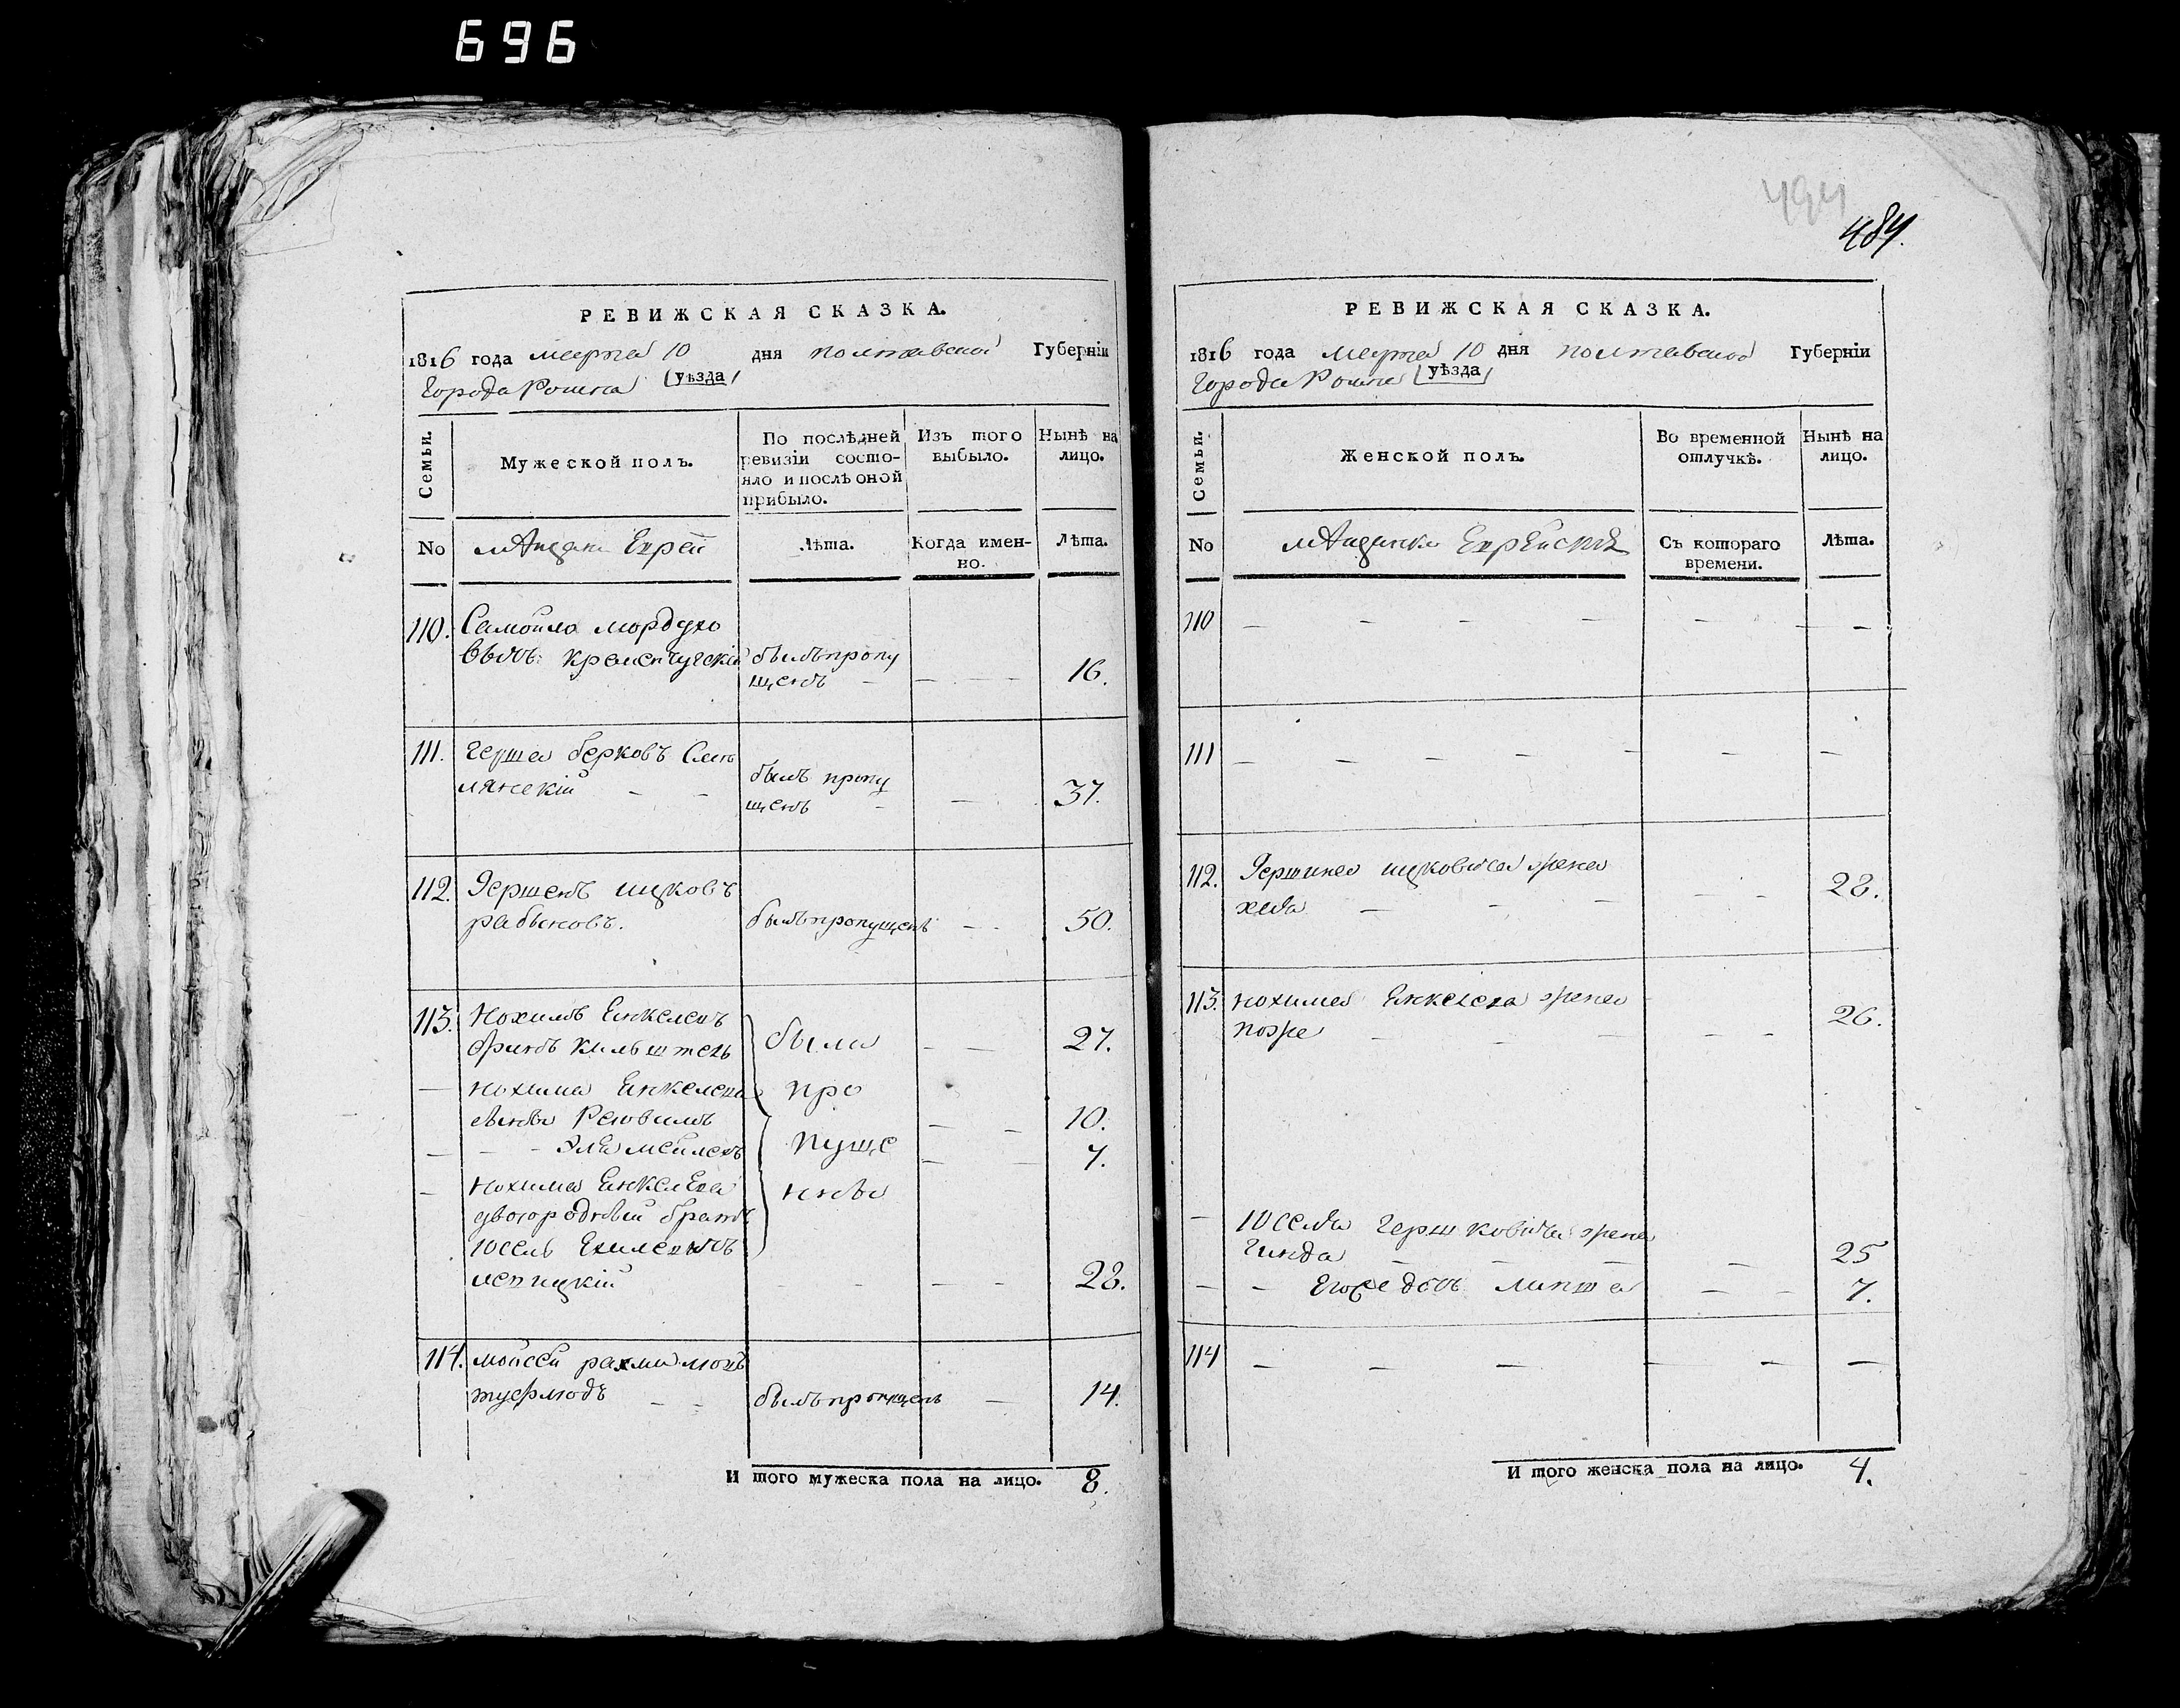 696
494
484.
РЕВИЖСКАЯ СКАЗКА.
1816 года марта 10 дня полтавской Губерніи
Города Ромна (уѣзда)
Семьи.
Мужеской полъ.
По послѣдней ревизіи состо-
яло и послѣ оной
прибыло.
Изъ того
выбыло.
Нынѣ на
лицо.
No
мѣщане Еврей
Лѣта.
Когда имен-
но.
Лѣта.
110. Самойло мордухо
вычъ кременчугскій былъ пропу
щенъ – – – 16.
111. герша берковъ
лянскій – – былъ пропу
щенъ – – 37.
112. Гершенъ ицковъ
рабыновъ. былъ пропущенъ – – 50.
113. Нохимъ Енкелевъ
была – – 27.
– нохима Енкелева
про
сыны Рювимъ – – 10.
– – – Элемейлехъ пуще – – 7.
– нохима Енкелева нны
двоюродный братъ
Іосель
лепицкій – – – – 28.
114. мойсей
былъ пропущенъ – 14.
И того мужеска пола на лицо. 8.
РЕВИЖСКАЯ СКАЗКА.
1816 года марта 10 дня полтавской Губерніи
Города Ромна (уѣзда)
Семьи.
Женской полъ.
Во временной
отлучкѣ.
Нынѣ на
лицо.
No
мѣщанки Еврейскія
Съ котораго
времени.
Лѣта.
110 – – – – – – –
111 – – – – – –
112. Гершина ицковича жена
хая – – – – – 28.
113. нохима Енкелева жена
– – – – 26.
– Іоселя Гершковича жена
Гинда – – – – 25
– – Его дочь Липша – – 7.
114 – – – – – –
И того женска пола на лицо. 4.